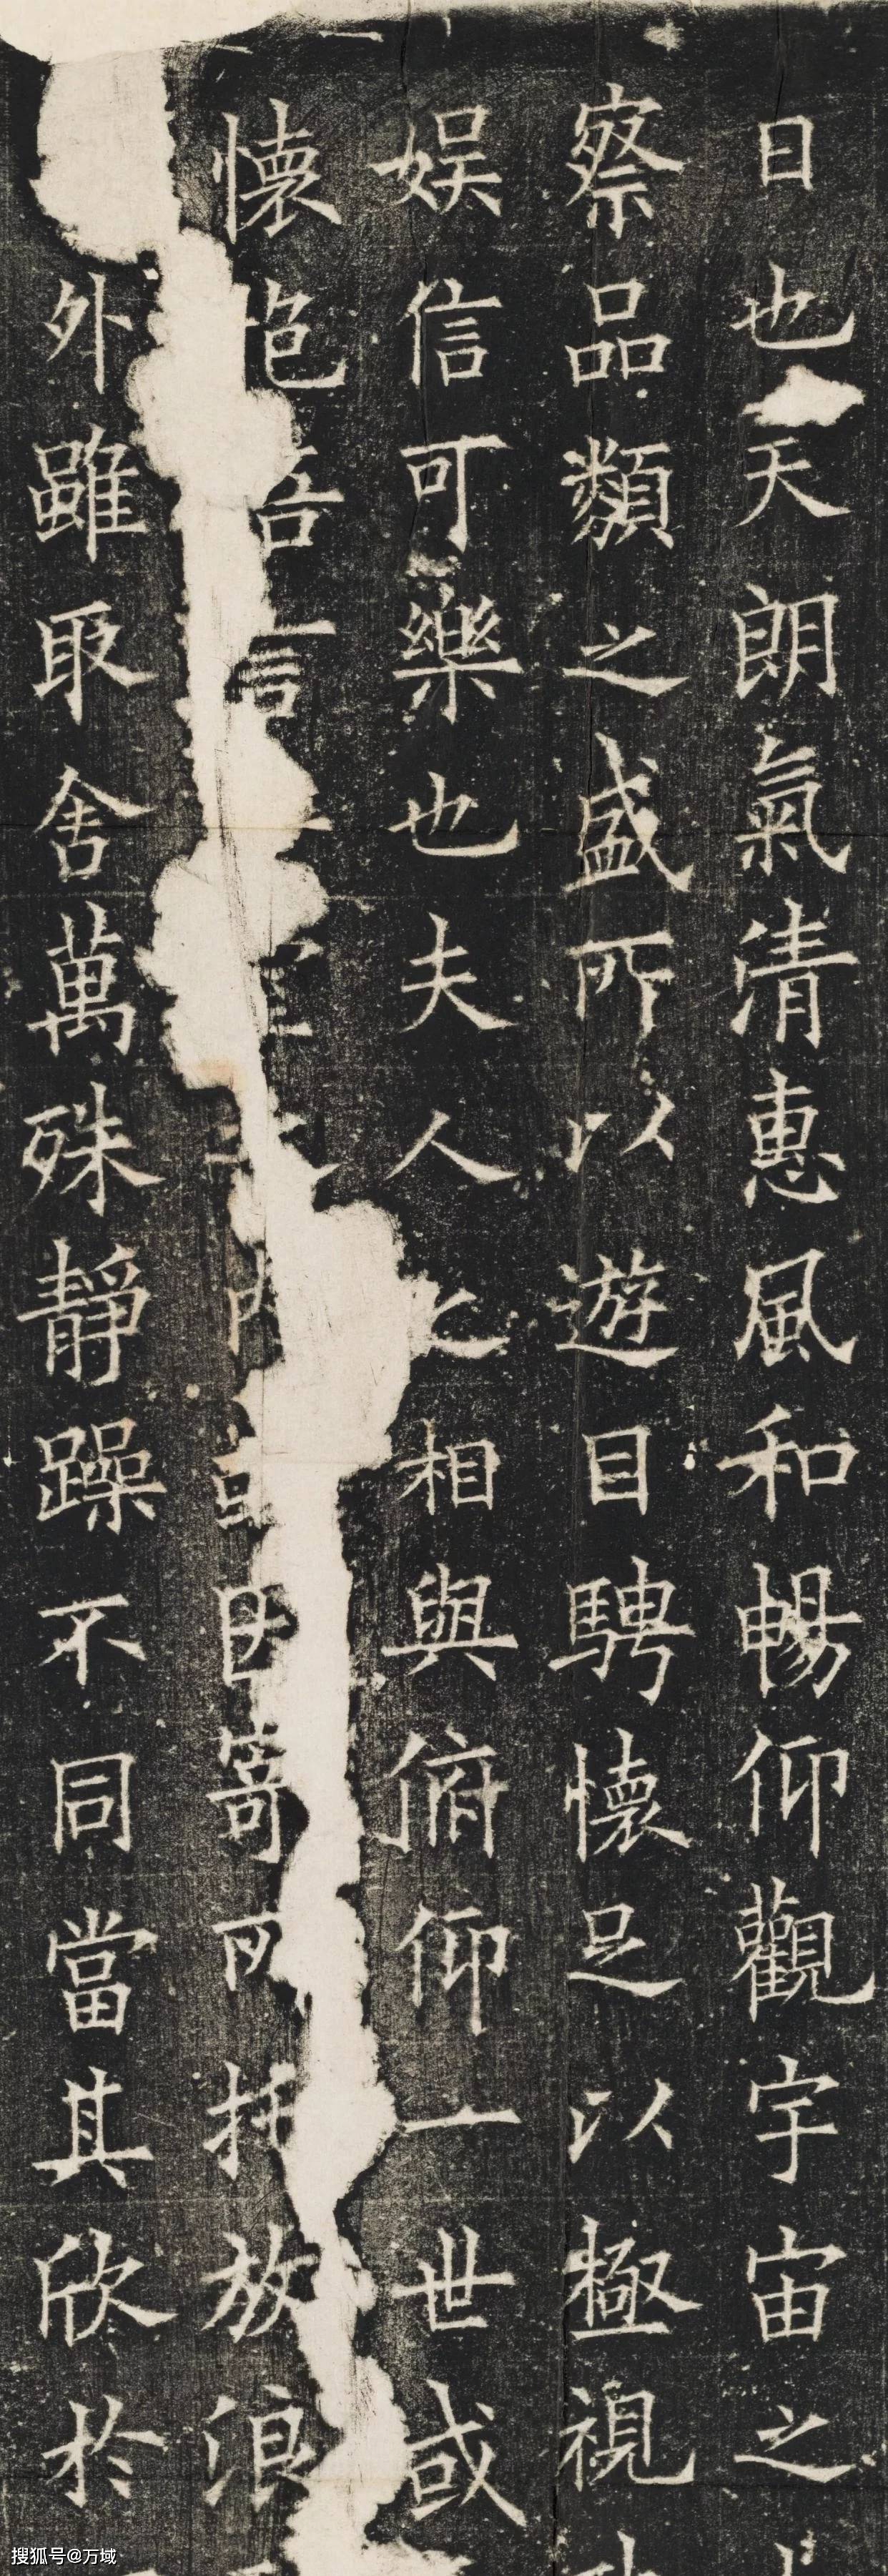 日也天朗氣清惠風和暢仰觀宇宙之
察品類之盛所以遊目騁懷足以極視
娛信可樂也夫人之相與俯仰一世或
懷抱悟言室內或因寄所托放浪
外雖取舍萬殊靜躁不同當其欣於
搜狐号@万域